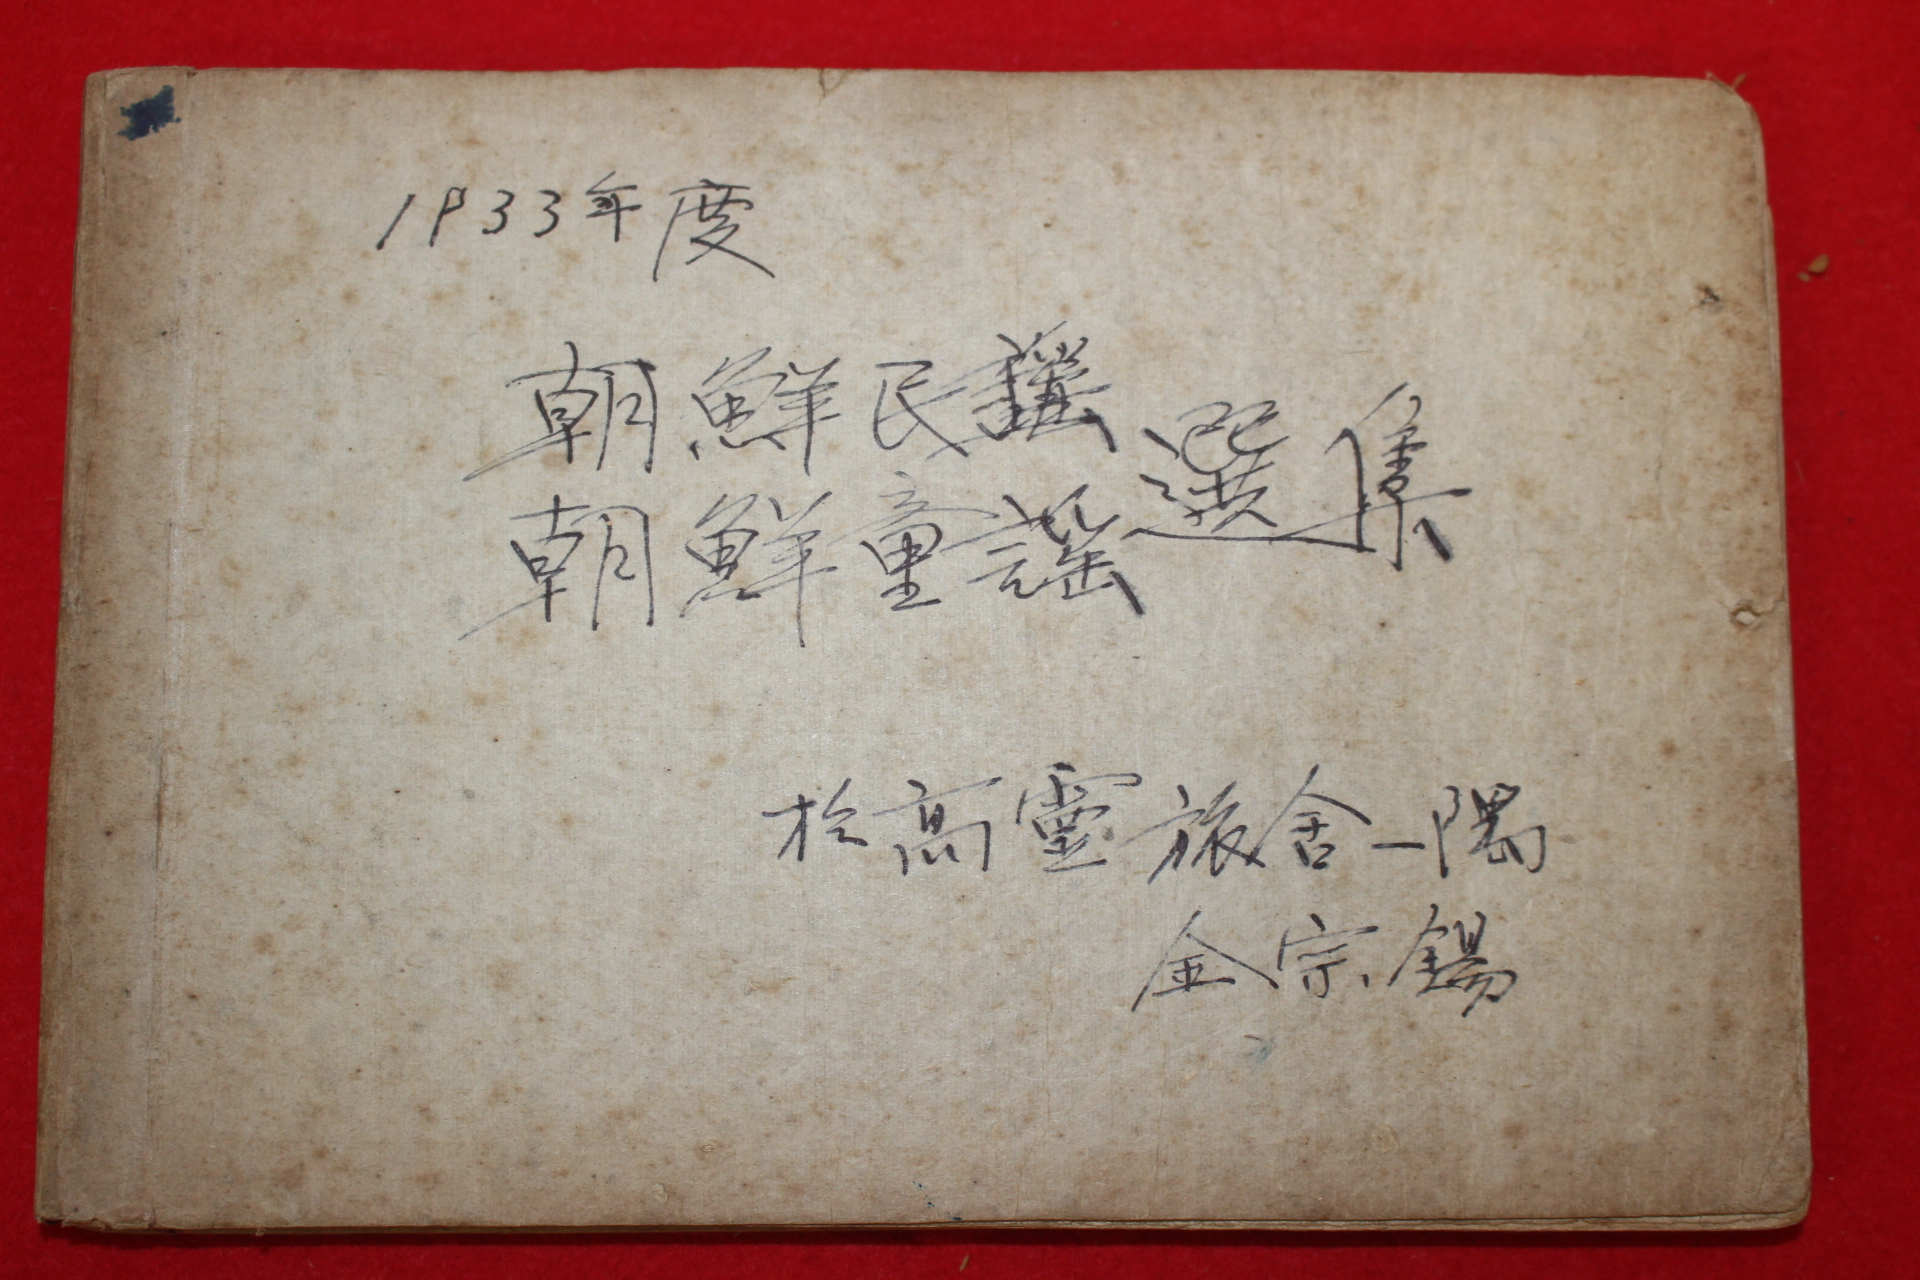 1933年度
朝鮮民謠
朝鮮童謠 選集
於高靈旅舍一隅
金宗錫